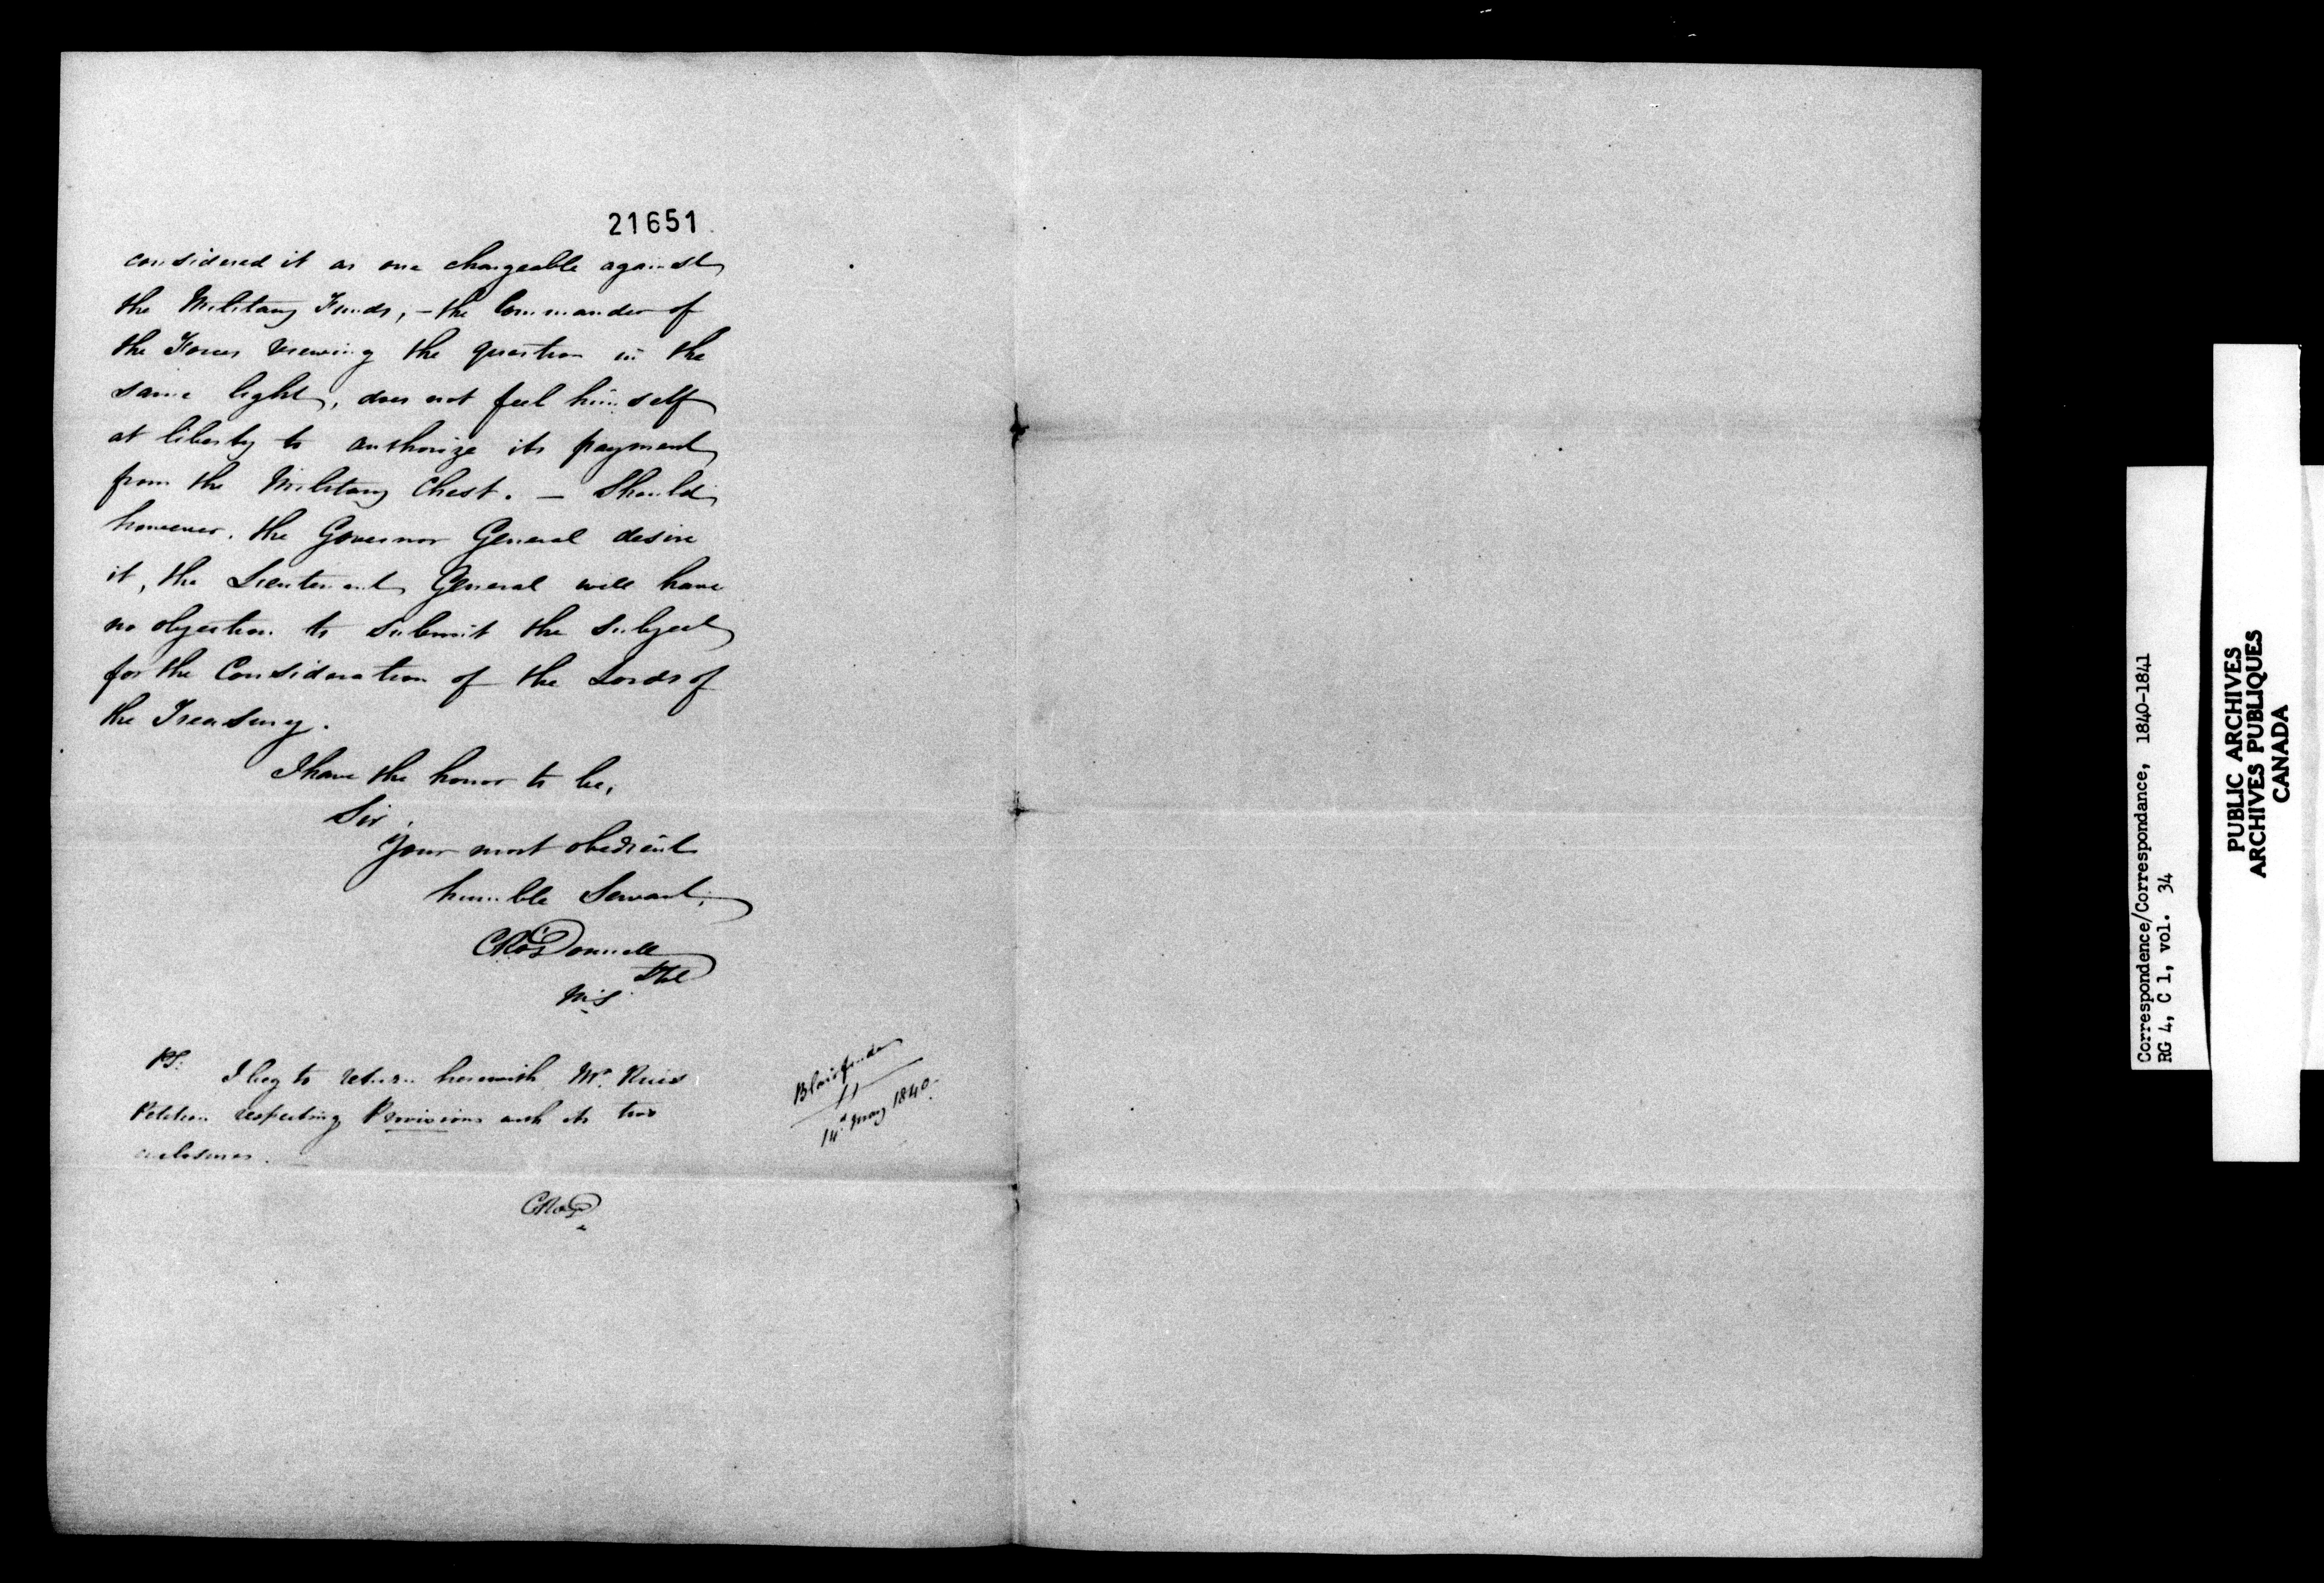 21651
considered it as one chargeable against
the Military Funds, - the Commander of
the Forces viewing the question in the
same light, does not feel himself
at liberty to authorize its payment
from the Military Chest. - Should
however, the Governor General desire
it, the Lieutenant General will have
no objection to submit the subject
for the Consideration of the Lords of
the Treasury.
I have the honor to be,
Sir,
Your most obedient
humble Servant,
CRO'Donnell
M.S.
PS. I beg to return herewith Mr.
Petition respecting Provisions with its two
enclosures.
CRO'D
14 May 1840.
Correspondence/Correspondance, 1840-1841
RG 4, C 1, vol. 34
PUBLIC ARCHIVES
ARCHIVES PUBLIQUES
CANADA